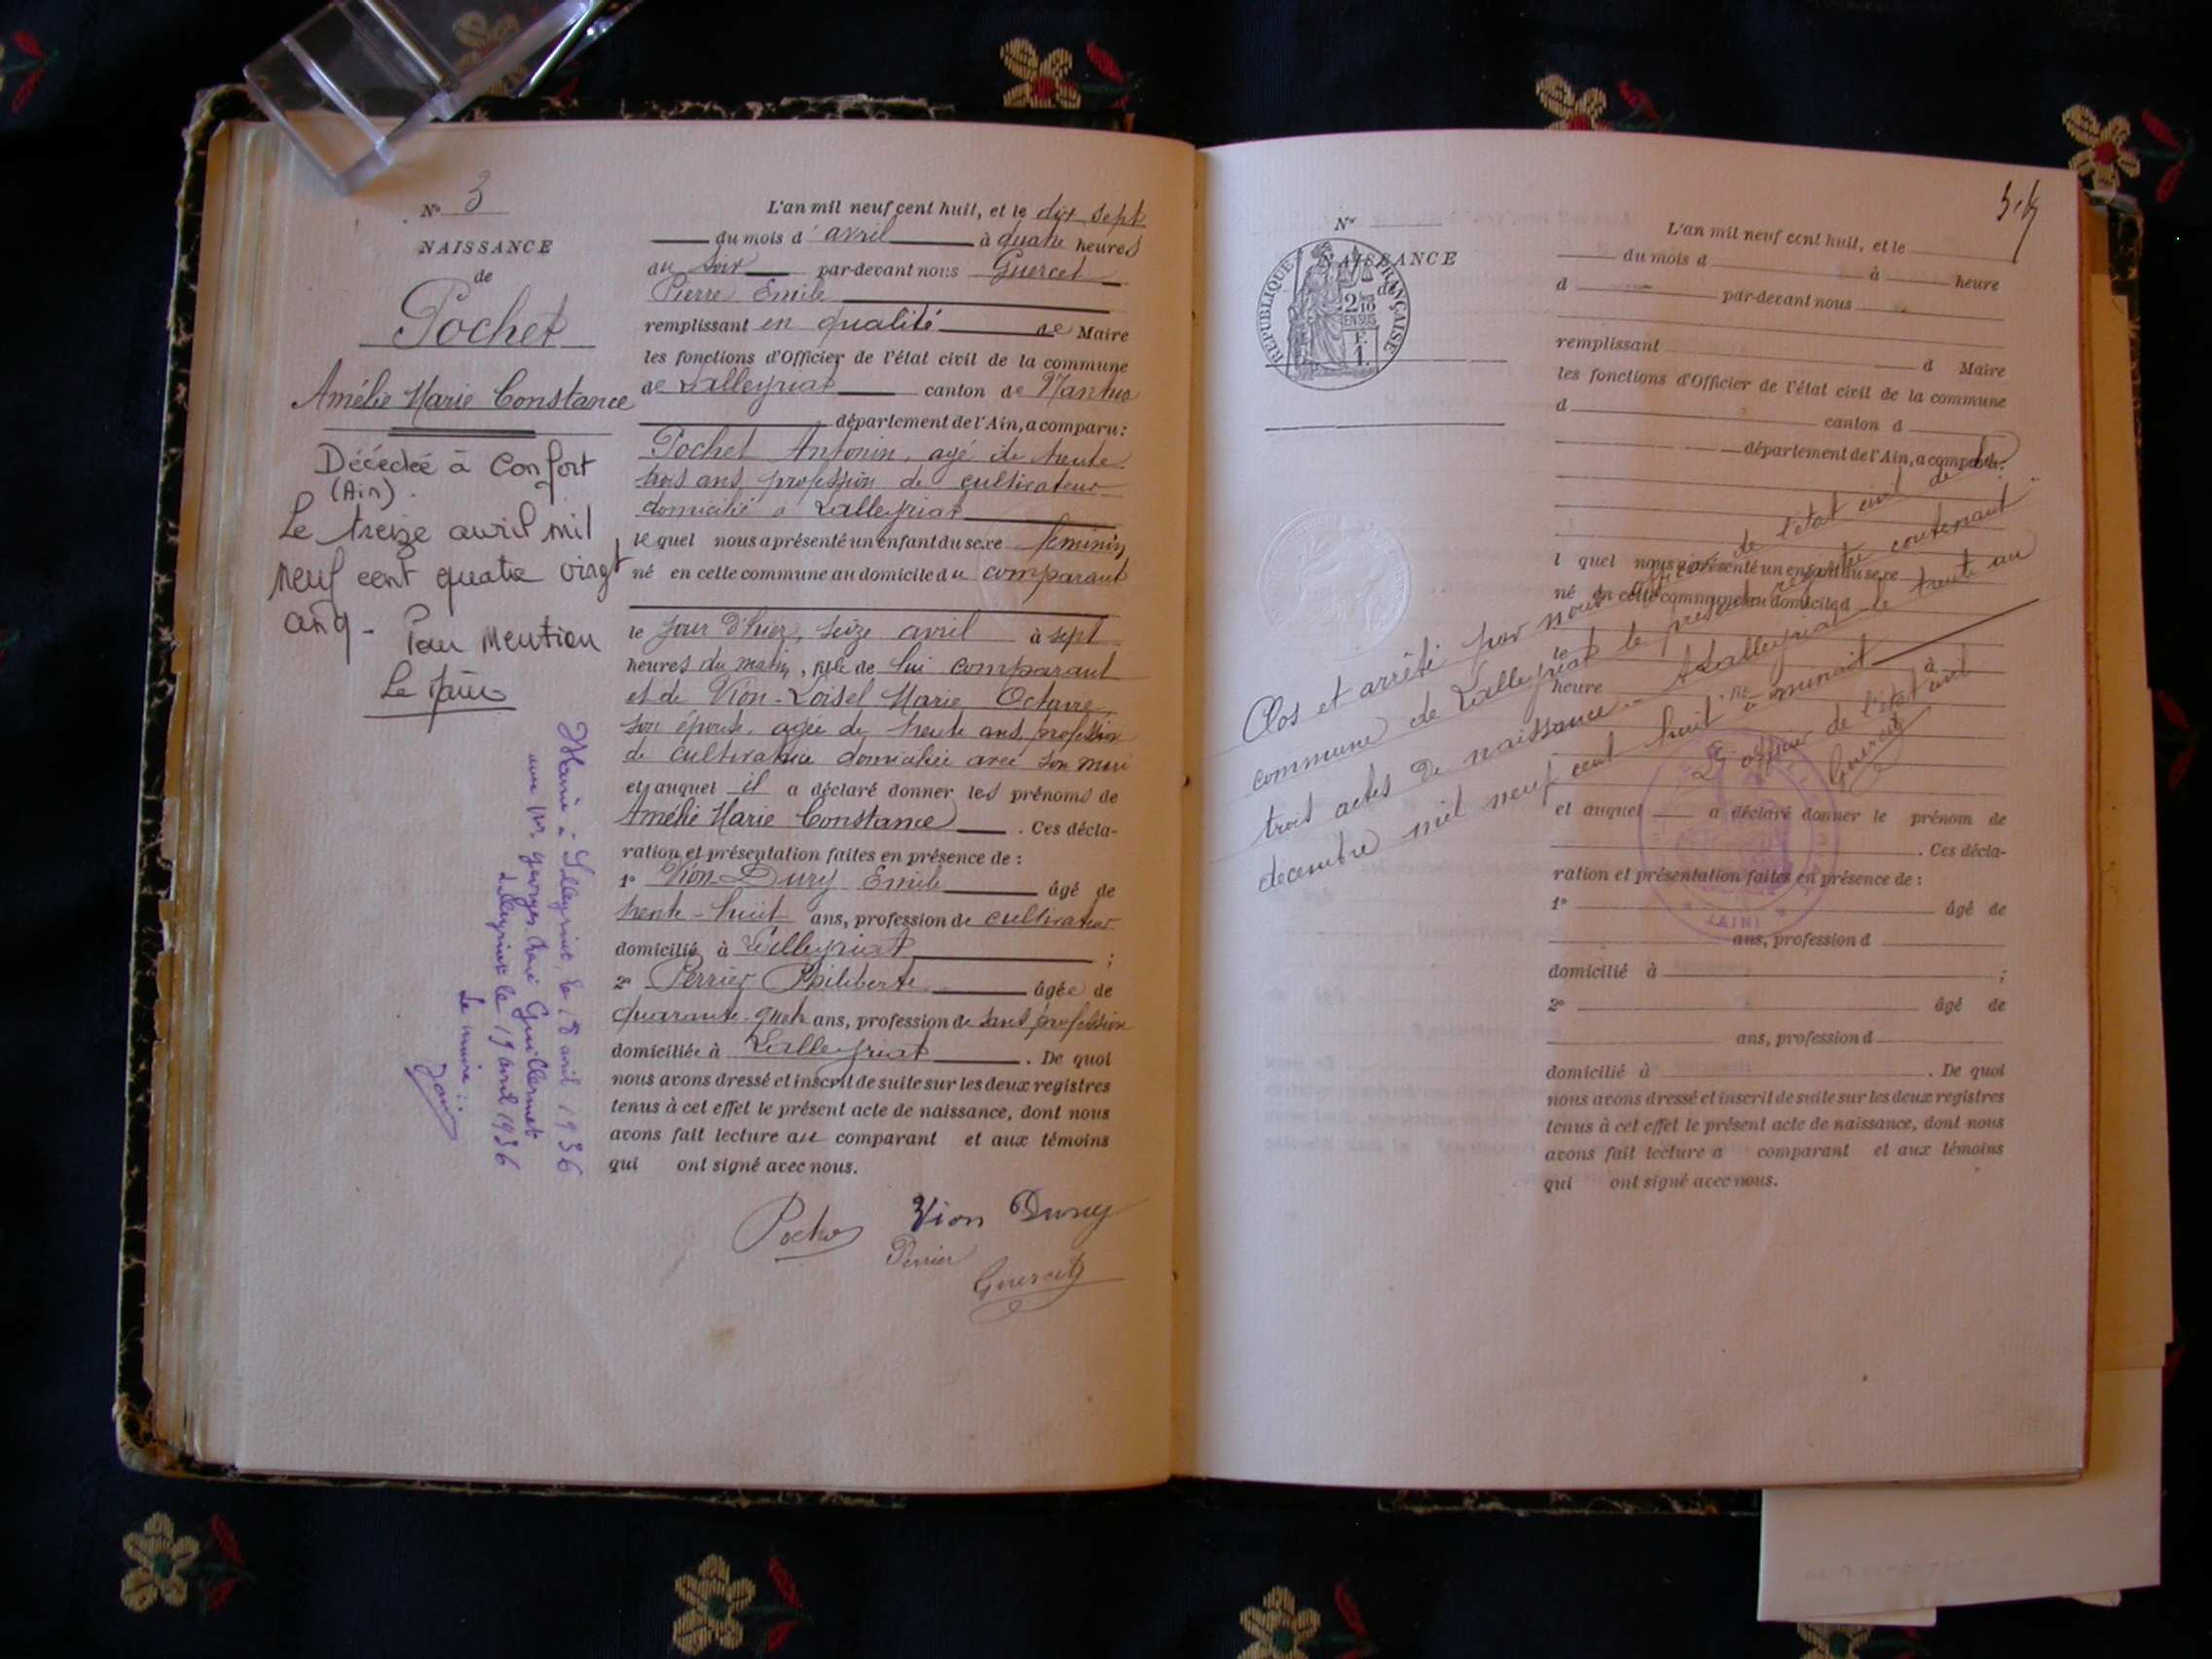 N° 3
NAISSANCE
de
Pochet
Amélie Marie Constance
Décédée à Confort
(Ain).
Le treize avril mil
neuf cent quatre vingt
cinq - Pour mention
Le Maire
Marié à Lalleyriat, le 18 avril 1936
avec Mr Georges Guillermet
Lalleyriat le 19 avril 1936
Le maire :
L'an mil neuf cent huit, et le dix sept
du mois d'avril à quatre heures
du soir par-devant nous Guercet
Pierre Emile
remplissant en qualité de Maire
les fonctions d'Officier de l'état civil de la commune
de Lalleyriat canton de Nantua
département de l'Ain, a comparu:
Pochet Antonin, agé de trente
trois ans, profession de cultivateur
domicilié à Lalleyriat
le quel nous a présenté un enfant du sexe féminin
né en cette commune au domicile du comparant
le jour d'hier, seize avril à sept
heures du matin, née de lui comparant
et de Vion-Loisel Marie Octavie,
son épouse, agée de trente ans, profession
de cultivatrice domiciliée avec son mari
et auquel il a déclaré donner les prénoms de
Amélie Marie Constance. Ces décla-
ration et présentation faites en présence de :
1° Vion-Dury Emile âgé de
trente-huit ans, profession de cultivateur
domicilié à Lalleyriat ;
2° Perrier Philiberte âgée de
quarante-quatre ans, profession de sans profession
domiciliée à Lalleyriat. De quoi
nous avons dressé et inscrit de suite sur les deux registres
tenus à cet effet le présent acte de naissance, dont nous
avons fait lecture au comparant et aux témoins
qui ont signé avec nous.
Pochet Vion Dury
Perrier
Guercet
N°
NAISSANCE
de
REPUBLIQUE FRANÇAISE
2/10
EN SUS
F.
1.
L'an mil neuf cent huit, et le
du mois d à heure
d par-devant nous
remplissant d Maire
les fonctions d'Officier de l'état civil de la commune
d canton d
département de l'Ain, a comparu:
l quel nous a présenté un enfant du sexe
né en cette commune au domicile d
le à
heure
Clos et arrêté par nous officier de l'état civil de la
commune de Lalleyriat le présent registre contenant
trois actes de naissance - A Lalleyriat le trente un
decembre mil neuf cent huit à minuit
L'officier de l'état civil
Guercet
et auquel a déclaré donner le prénom de
. Ces décla-
ration et présentation faites en présence de :
1° âgé de
ans, profession d
domicilié à ;
(AIN)
2° âgé de
ans, profession d
domicilié à . De quoi
nous avons dressé et inscrit de suite sur les deux registres
tenus à cet effet le présent acte de naissance, dont nous
avons fait lecture a comparant et aux témoins
qui ont signé avec nous.